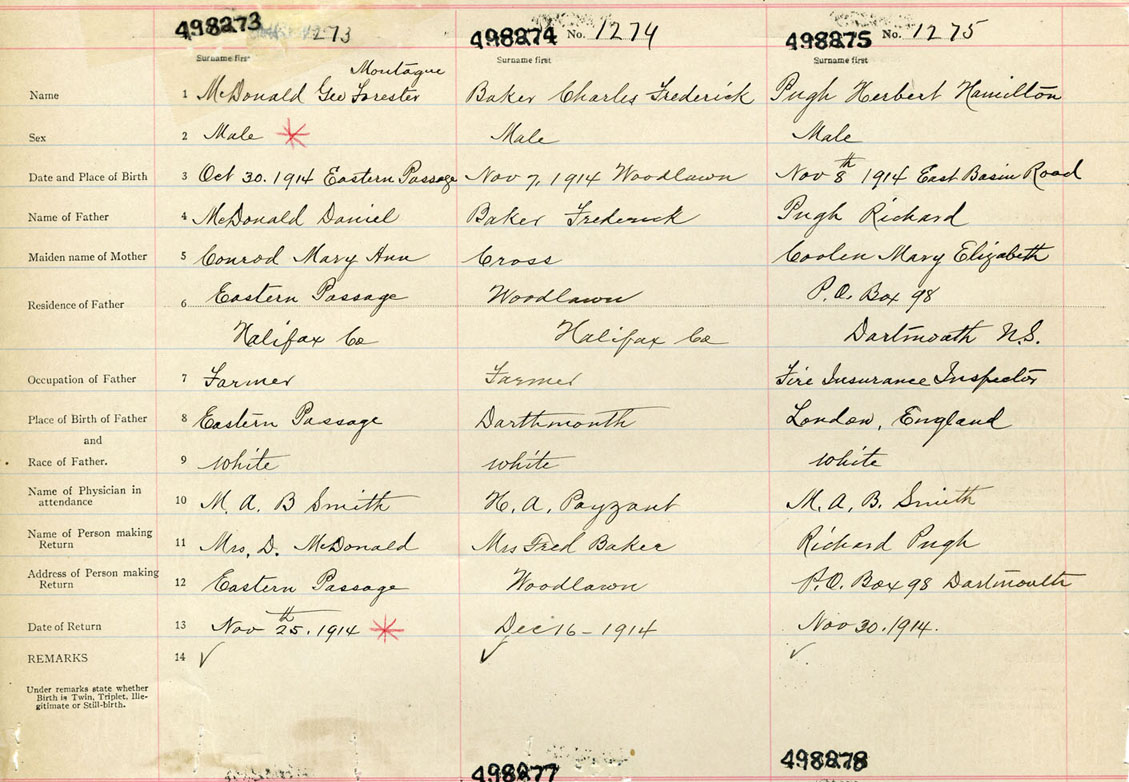 498273 1273 498274 No. 1274 498275 No. 1275
Surname first Surname first Surname first
Montague
Name 1 McDonald Geo Forester Baker Charles Frederick Pugh Herbert Hamilton
Sex 2 Male Male Male
Date and Place of Birth 3 Oct 30. 1914 Eastern Passage Nov 7, 1914 Woodlawn Nov 8th 1914 East Basin Road
Name of Father 4 McDonald Daniel Baker Frederick Pugh Richard
Maiden name of Mother 5 Conrod Mary Ann Cross Coolen Mary Elizabeth
Residence of Father 6 Eastern Passage Woodlawn P.O. Box 98
Halifax Co Halifax Co Dartmouth N.S.
Occupation of Father 7 Farmer Farmer Fire Insurance Inspector
Place of Birth of Father 8 Eastern Passage Darthmouth London, England
and
Race of Father. 9 white white white
Name of Physician in
attendance 10 M. A. B Smith H. A. Payzant M. A. B. Smith
Name of Person making
Return 11 Mrs. D. McDonald Mrs Fred Baker Richard Pugh
Address of Person making
Return 12 Eastern Passage Woodlawn P.O. Box 98 Dartmouth
Date of Return 13 Nov 25th. 1914 Dec 16 - 1914 Nov 30. 1914.
REMARKS 14 ✓ ✓ ✓
Under remarks state whether
Birth is Twin, Triplet, Ille-
gitimate or Still-birth.
498277 498278